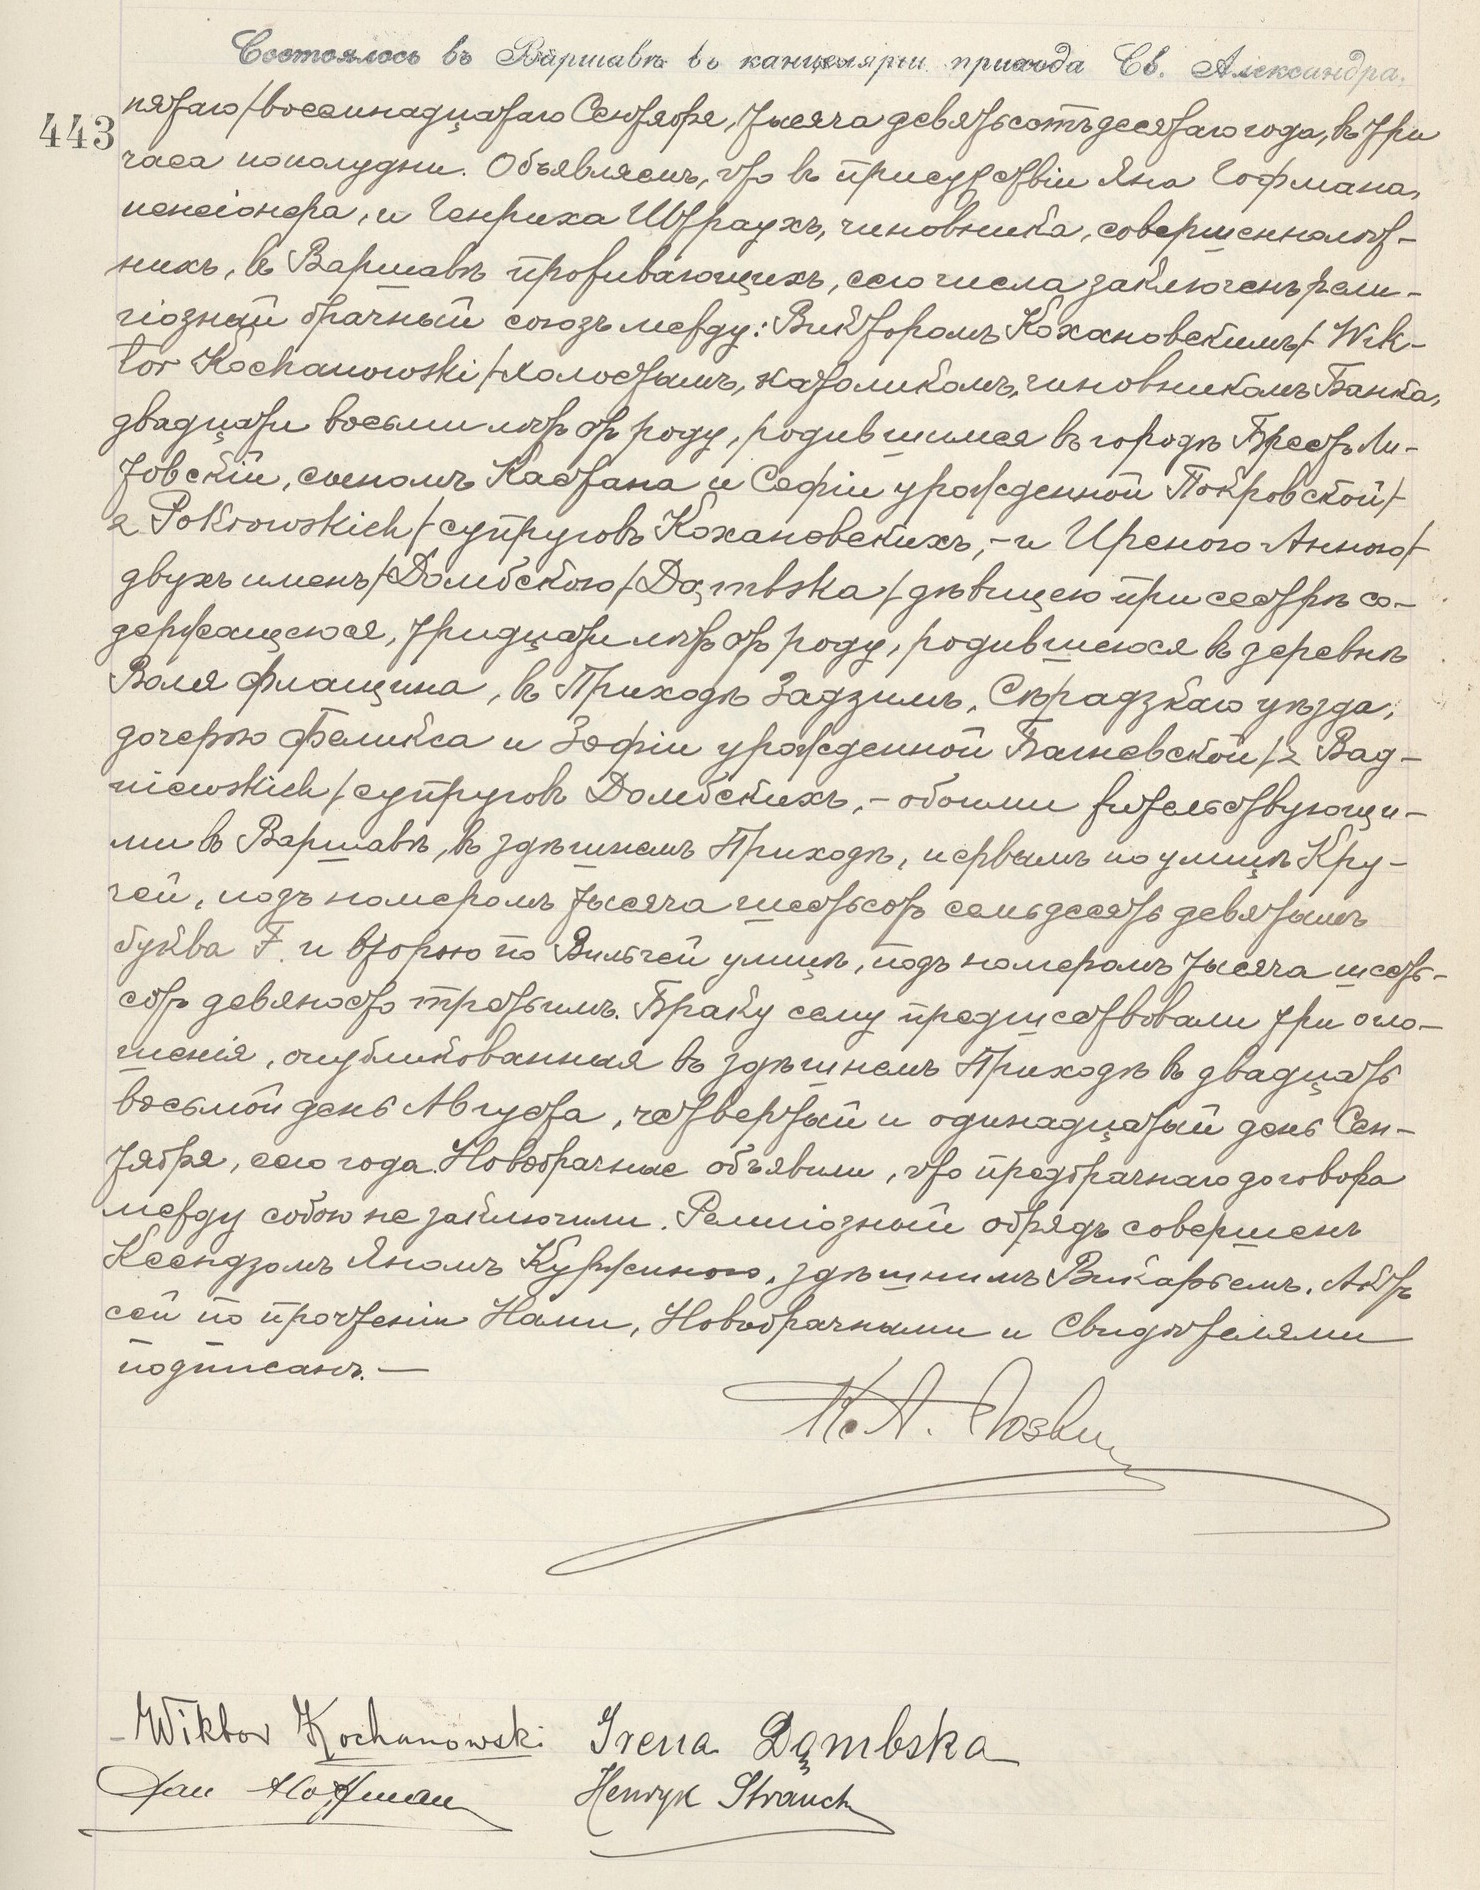 Состоялось въ Варшавѣ въ канцеляріи прихода Св. Александра.
443
пятаго/восемнадцатаго Сентября, тысяча девятьсотъ десятаго года, въ три
часа пополудни. Объявляемъ, что въ присутствіи Яна Гофмана,
пенсіонера, и Генриха Штраухъ, чиновника, совершеннолѣт-
нихъ, въ Варшавѣ проживающихъ, сего числа заключенъ рели-
гіозный брачный союзъ между: Викторомъ Кохановскимъ/ Wik-
tor Kochanowski/ холостымъ, католикомъ, чиновникомъ Банка,
двадцати восьми лѣтъ отъ роду, родившимся въ городѣ Брестъ Ли-
товскій, сыномъ Каетана и Софіи урожденной Покровской/
z Pokrowskich/ супруговъ Кохановскихъ, - и Иреною Анною/
двухъ именъ/ Домбскою/ Dąmbska/ дѣвицею при сестрѣ со-
держащеюся, тридцати лѣтъ отъ роду, родившеюся въ деревнѣ
Воля Флащина, въ Приходѣ Задзимъ, Сѣрадзкаго уѣзда,
дочерью Феликса и Зофіи урожденной Багневской/ z Bag-
niewskich/ супруговъ Домбскихъ, - обоими жительствующи-
ми въ Варшавѣ, въ здѣшнемъ Приходѣ, первымъ по улицѣ Кру-
чей, подъ номеромъ тысяча шестьсотъ семьдесятъ девятымъ
буква F. и второю по Вильчей улицѣ, подъ номеромъ тысяча шесть-
сотъ девяносто третьимъ. Браку сему предшествовали три огло-
шенія, опубликованныя въ здѣшнемъ Приходѣ въ двадцать
восьмой день Августа, четвертый и одинадцатый день Сен-
тября, сего года. Новобрачные объявили, что предбрачнаго договора
между собою не заключили. Религіозный обрядъ совершенъ
Ксендзомъ Яномъ здѣшнимъ Викаріемъ. Актъ
сей по прочтеніи Нами, Новобрачными и Свидѣтелями
подписанъ. —
К. А.
Wiktor Kochanowski Irena Dąmbska
Jan Hoffman Henryk Strauch